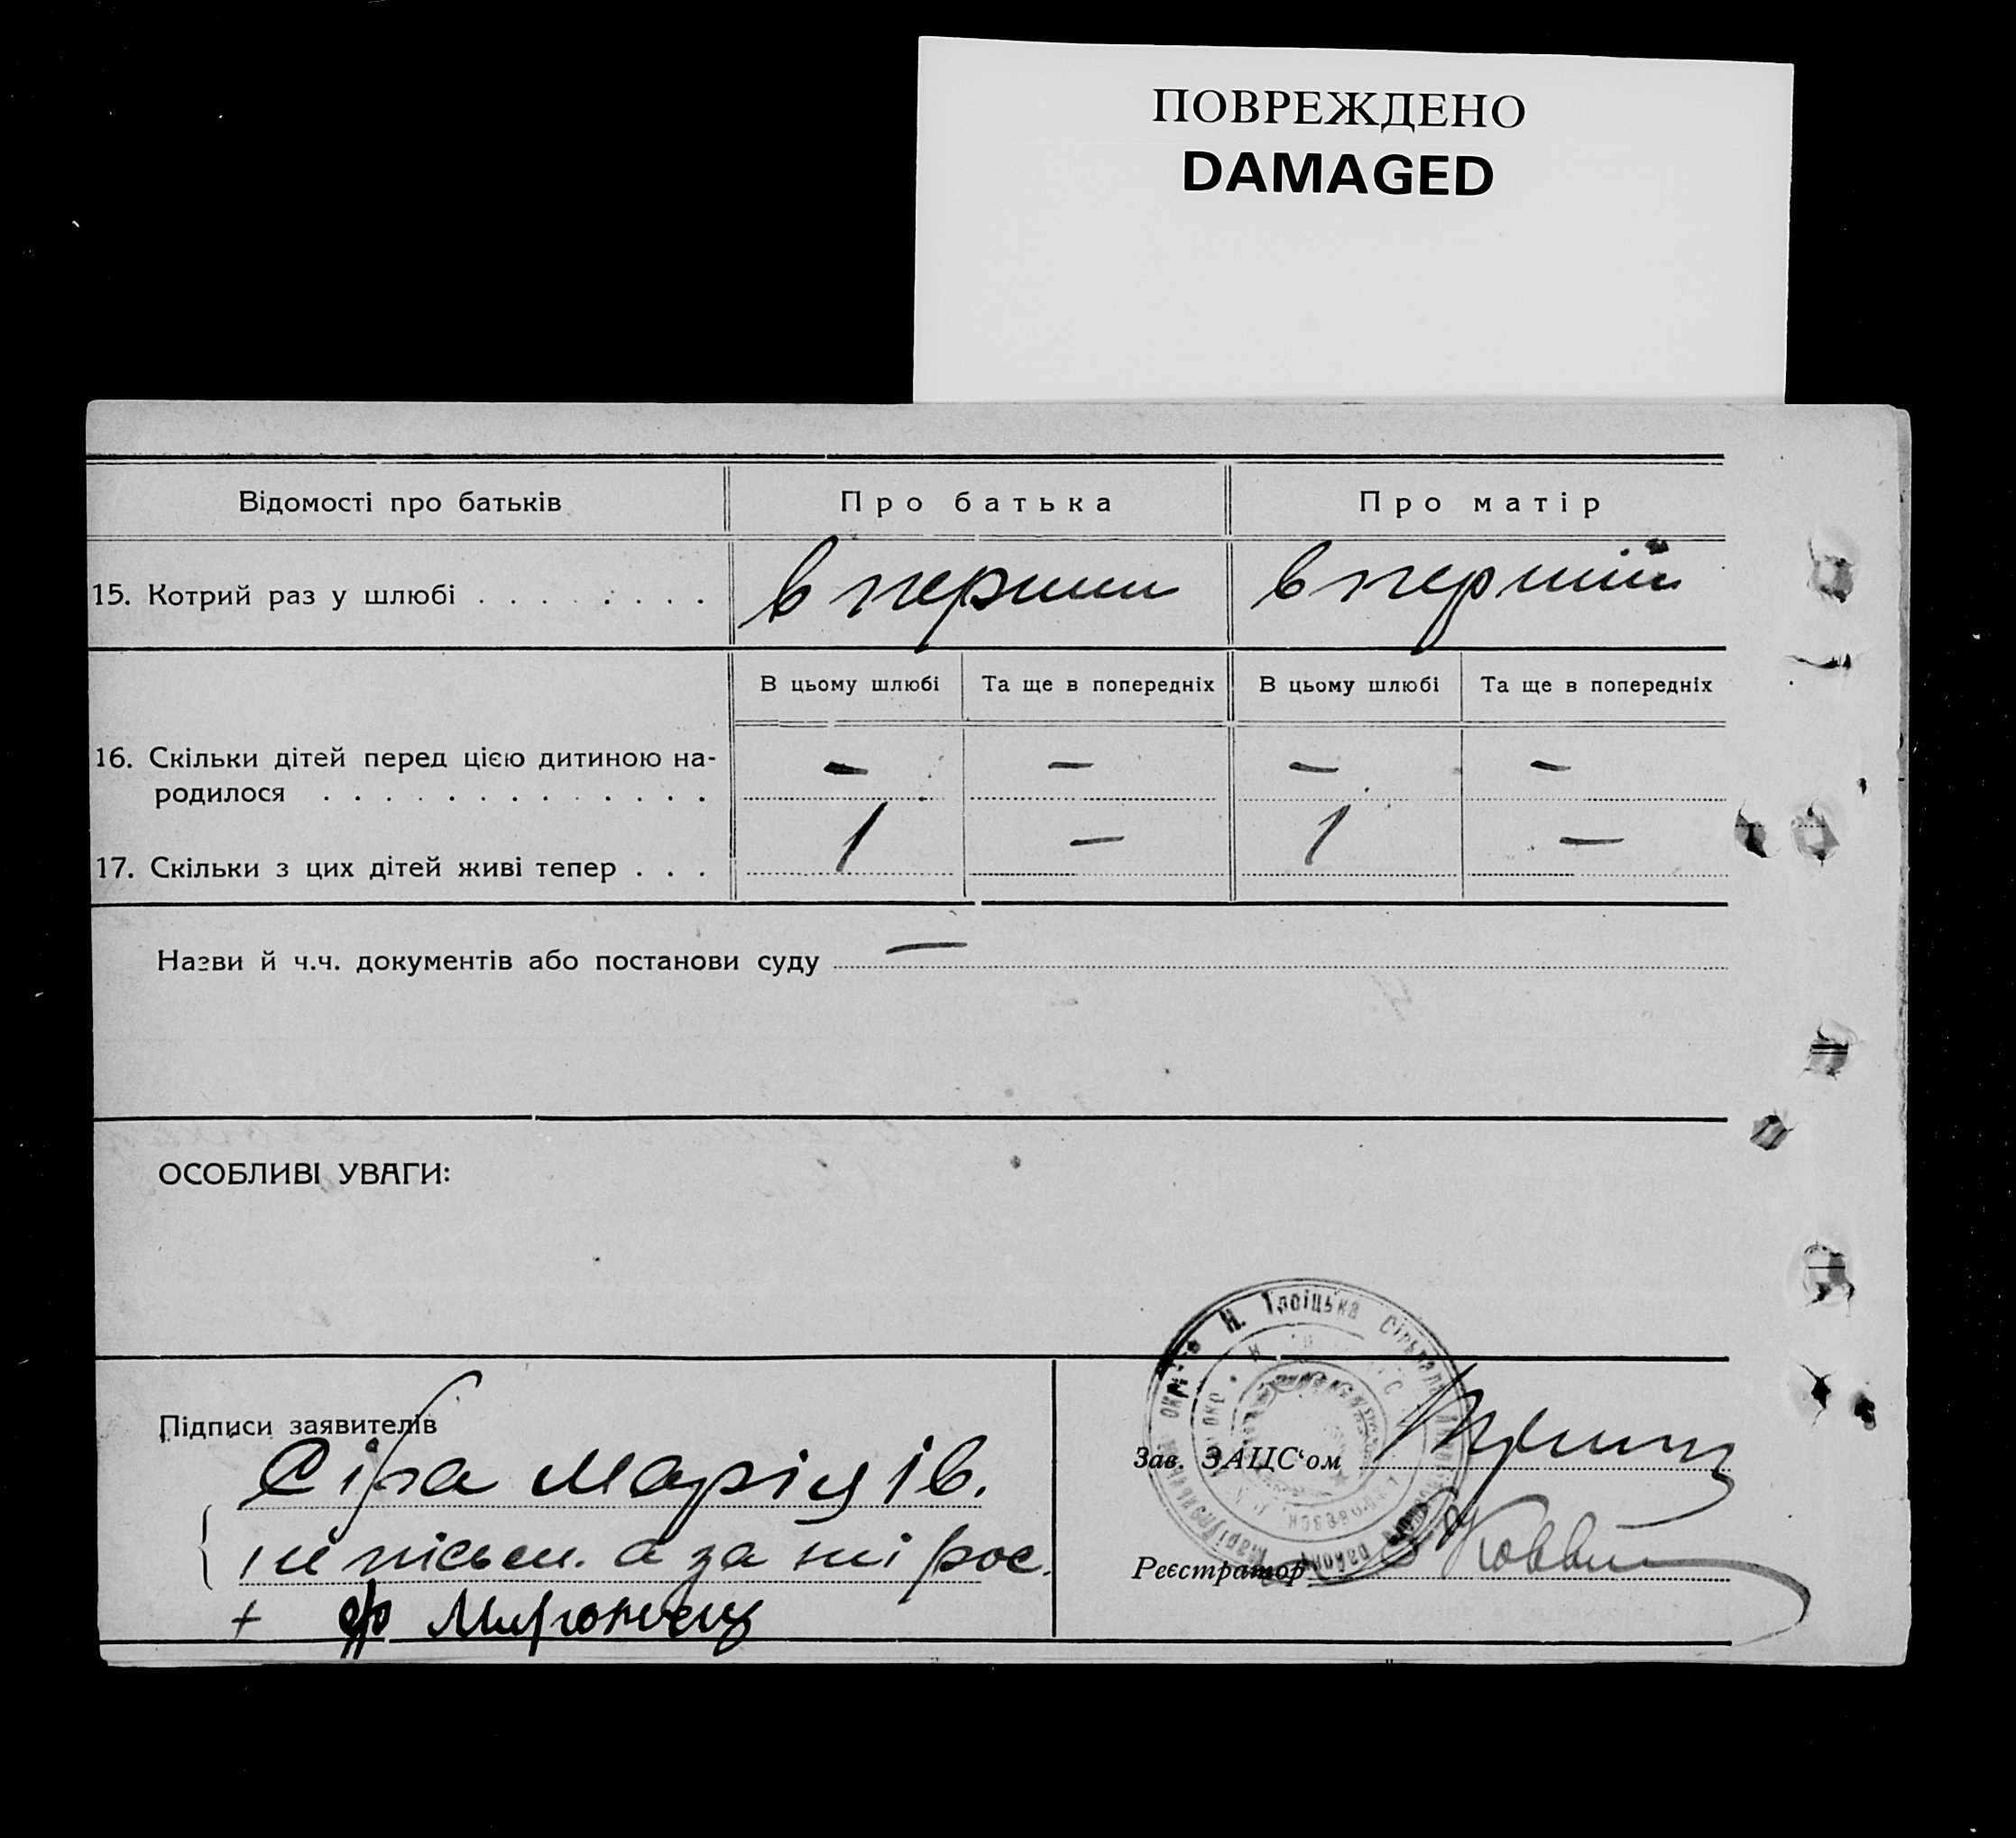 ПОВРЕЖДЕНО
DAMAGED
Відомості про батьків
Про батька
Про матір
15. Котрий раз у шлюбі . . . . . . . .
в перший
в перший
В цьому шлюбі
Та ще в попередніх
В цьому шлюбі
Та ще в попередніх
16. Скільки дітей перед цією дитиною на-
родилося . . . . . . . . . . . . .
—
—
—
—
17. Скільки з цих дітей живі тепер . . .
1
—
1
—
Назви й ч.ч. документів або постанови суду
—
ОСОБЛИВІ УВАГИ:
Н. Троіцька
Підписи заявителів
Сіра Марія Ів.
а за ні рос.
+
Зав. ЗАЦС‘ом
Реєстратор